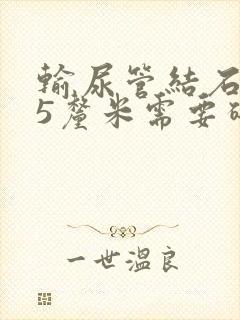 輸尿管結石
5釐米需要
一世溫良